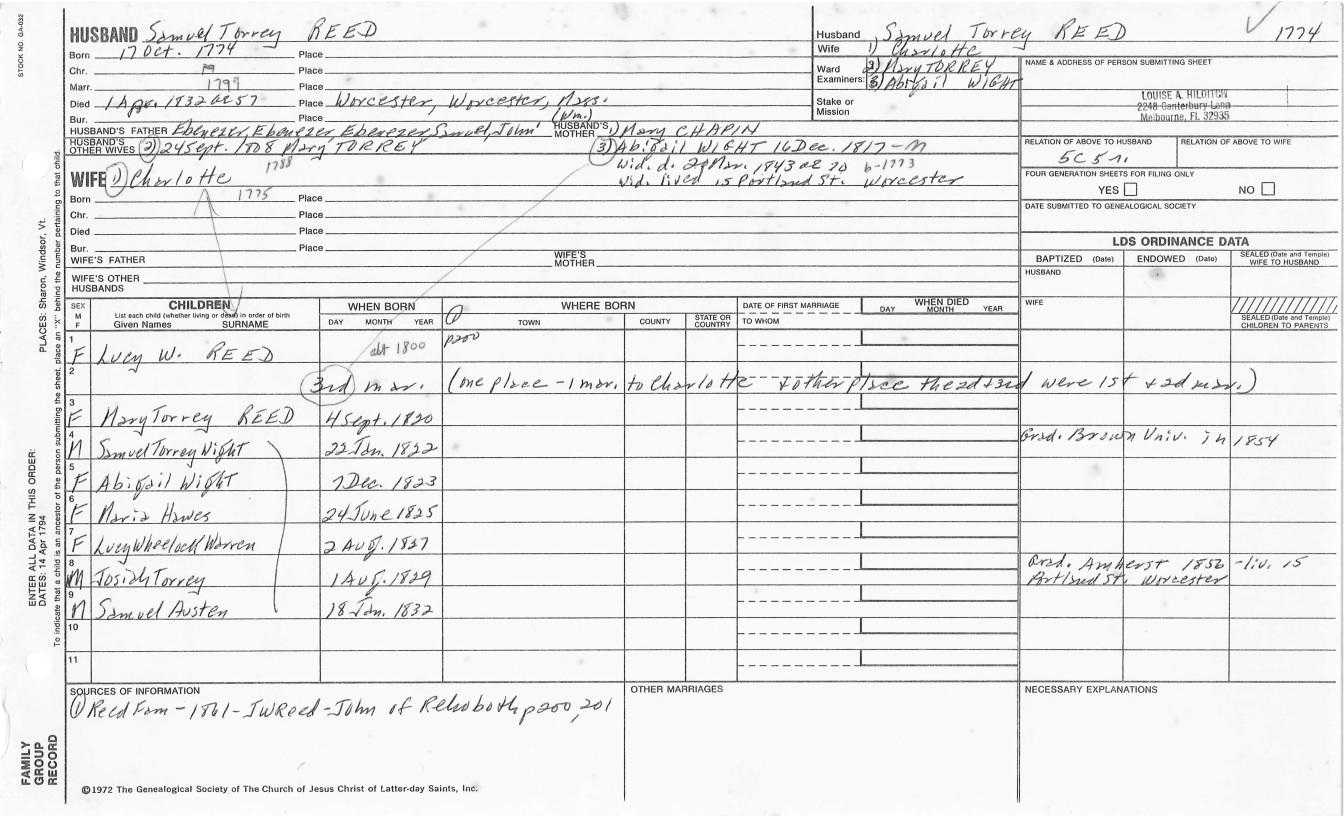 STOCK NO. GA-032
HUSBAND Samuel Torrey REED
Born 17 Oct. 1774 Place
Chr. Place
Marr. 1799 Place
Died 1 Apr. 1832 ae 57 Place Worcester, Worcester, Mass.
Bur. Place (Wm.)
HUSBAND'S FATHER Ebenezer, Ebenezer, Ebenezer, Samuel, John HUSBAND'S MOTHER 1) Mary CHAPIN
HUSBAND'S OTHER WIVES 2) 24 Sept. 1808 Mary TORREY 3) Abigail WIGHT 16 Dec. 1817-M
1788 wid. d. Mar. 1843 ae 70 b-1773
WIFE 1) Charlotte wid. lived 15 Portland St. Worcester
Born 1775 Place
Chr. Place
Died Place
Bur. Place
WIFE'S FATHER WIFE'S MOTHER
WIFE'S OTHER HUSBANDS
Husband Samuel Torrey REED 1774
Wife 1) Charlotte
2) Mary TORREY
3) Abigail WIGHT
Ward Examiners:
Stake or Mission
NAME & ADDRESS OF PERSON SUBMITTING SHEET
LOUISE A. HILDITCH
2248 Canterbury Lane
Melbourne, FL 32935
RELATION OF ABOVE TO HUSBAND RELATION OF ABOVE TO WIFE
5C 5 r.
FOUR GENERATION SHEETS FOR FILING ONLY
YES NO
DATE SUBMITTED TO GENEALOGICAL SOCIETY
LDS ORDINANCE DATA
BAPTIZED (Date) ENDOWED (Date) SEALED (Date and Temple) WIFE TO HUSBAND
HUSBAND
WIFE
SEALED (Date and Temple) CHILDREN TO PARENTS
SEX M F
CHILDREN
List each child (whether living or dead) in order of birth
Given Names SURNAME
WHEN BORN
DAY MONTH YEAR
WHERE BORN
TOWN COUNTY STATE OR COUNTRY
DATE OF FIRST MARRIAGE
TO WHOM
WHEN DIED
DAY MONTH YEAR
1 F Lucy W. REED abt 1800 p200
2 3rd mar. (one place - 1 mar. to Charlotte + other place the 2d + 3rd were 1st + 2d mar.)
3 F Mary Torrey REED 4 Sept. 1820
4 M Samuel Torrey Wight 22 Jan. 1822 Grad. Brown Univ. in 1854
5 F Abigail Wight 7 Dec. 1823
6 F Maria Hawes 24 June 1825
7 F Lucy Wheelock Warren 2 Aug. 1827
8 M Josiah Torrey 1 Aug. 1829 Grad. Amherst 1856 - liv. 15
Portland St. Worcester
9 M Samuel Austen 18 Jan. 1832
10
11
SOURCES OF INFORMATION
① Reed Fam - 1861 - JWReed - John of Rehoboth p200, 201
OTHER MARRIAGES
NECESSARY EXPLANATIONS
©1972 The Genealogical Society of The Church of Jesus Christ of Latter-day Saints, Inc.
FAMILY GROUP RECORD
ENTER ALL DATA IN THIS ORDER:
DATES: 14 Apr 1794
PLACES: Sharon, Windsor, Vt.
To indicate that a child is an ancestor of the person submitting the sheet, place an "X" behind the number pertaining to that child.